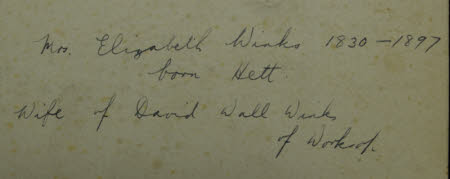 Mrs. Elizabeth Winks 1830-1897
born Hett.
Wife of David Wall Winks
of Worksop.